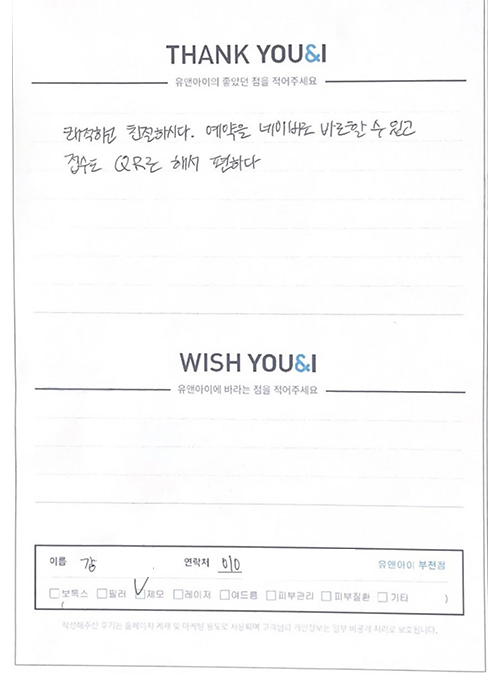 THANK YOU&I
유앤아이의 좋았던 점을 적어주세요
쾌적하고 친절하시다. 예약을 네이버로 바로할 수 있고
접수도 QR로 해서 편하다
WISH YOU&I
유앤아이에 바라는 점을 적어주세요
이름 강 연락처 010 유앤아이 부천점
보톡스 필러 제모 레이저 여드름 피부관리 피부질환 기타
( )
작성해주신 후기는 홈페이지 게재 및 마케팅 용도로 사용되며 고객님의 개인정보는 일부 비공개 처리로 보호됩니다.